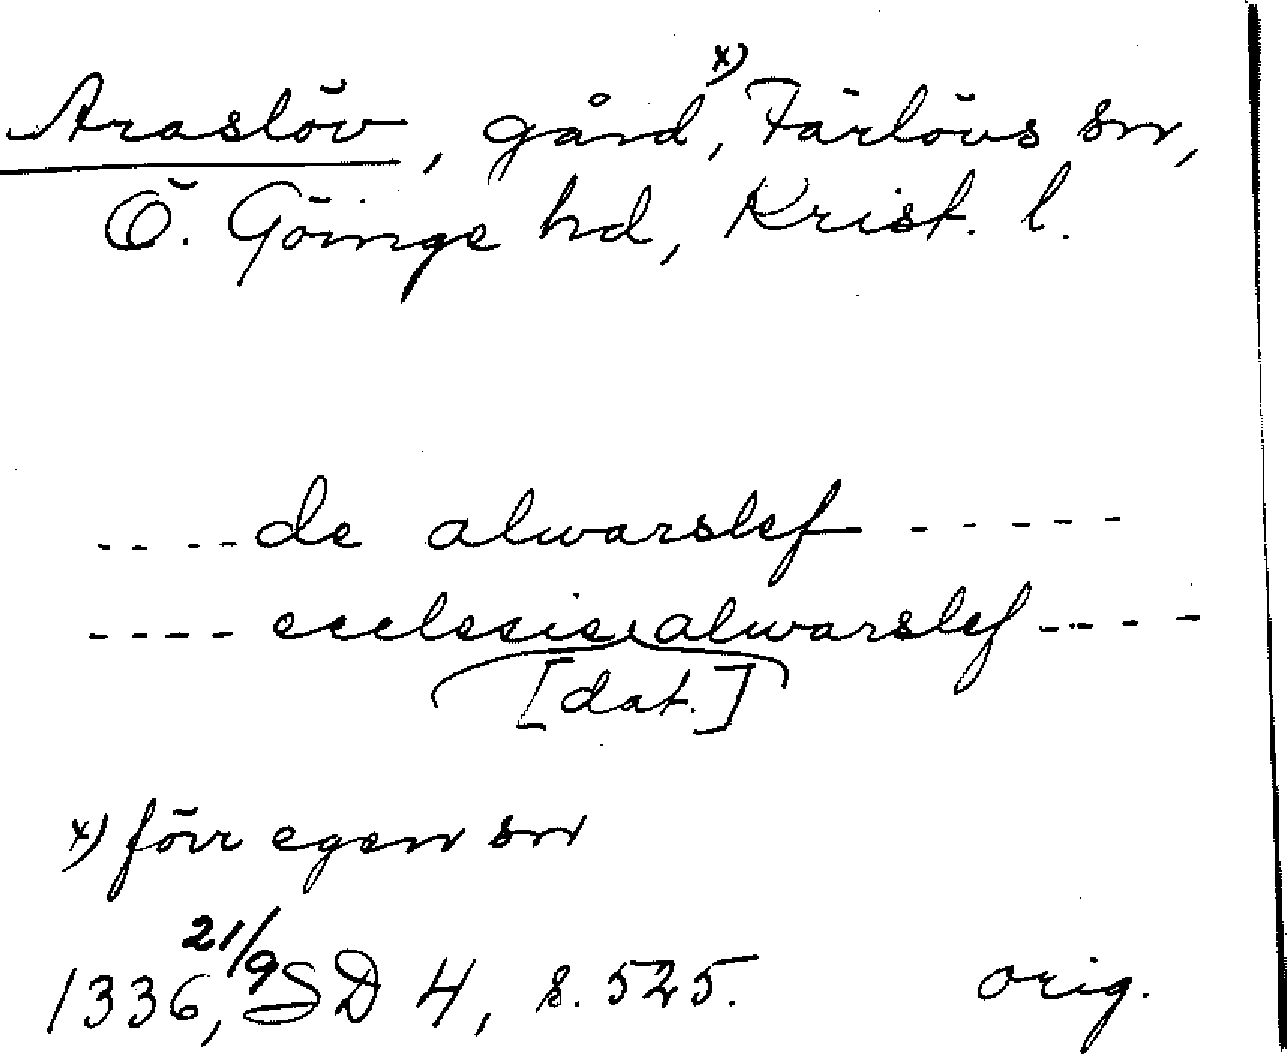 Araslöv, gård,ˣ⁾ Färlövs sn,
Ö. Göinge hd, Krist. l.
....de alwarslef-----
----ecclesie alwarslef----
[dat.]
x) förr egen sn
1336, 21/9 SD 4, s. 525. orig.